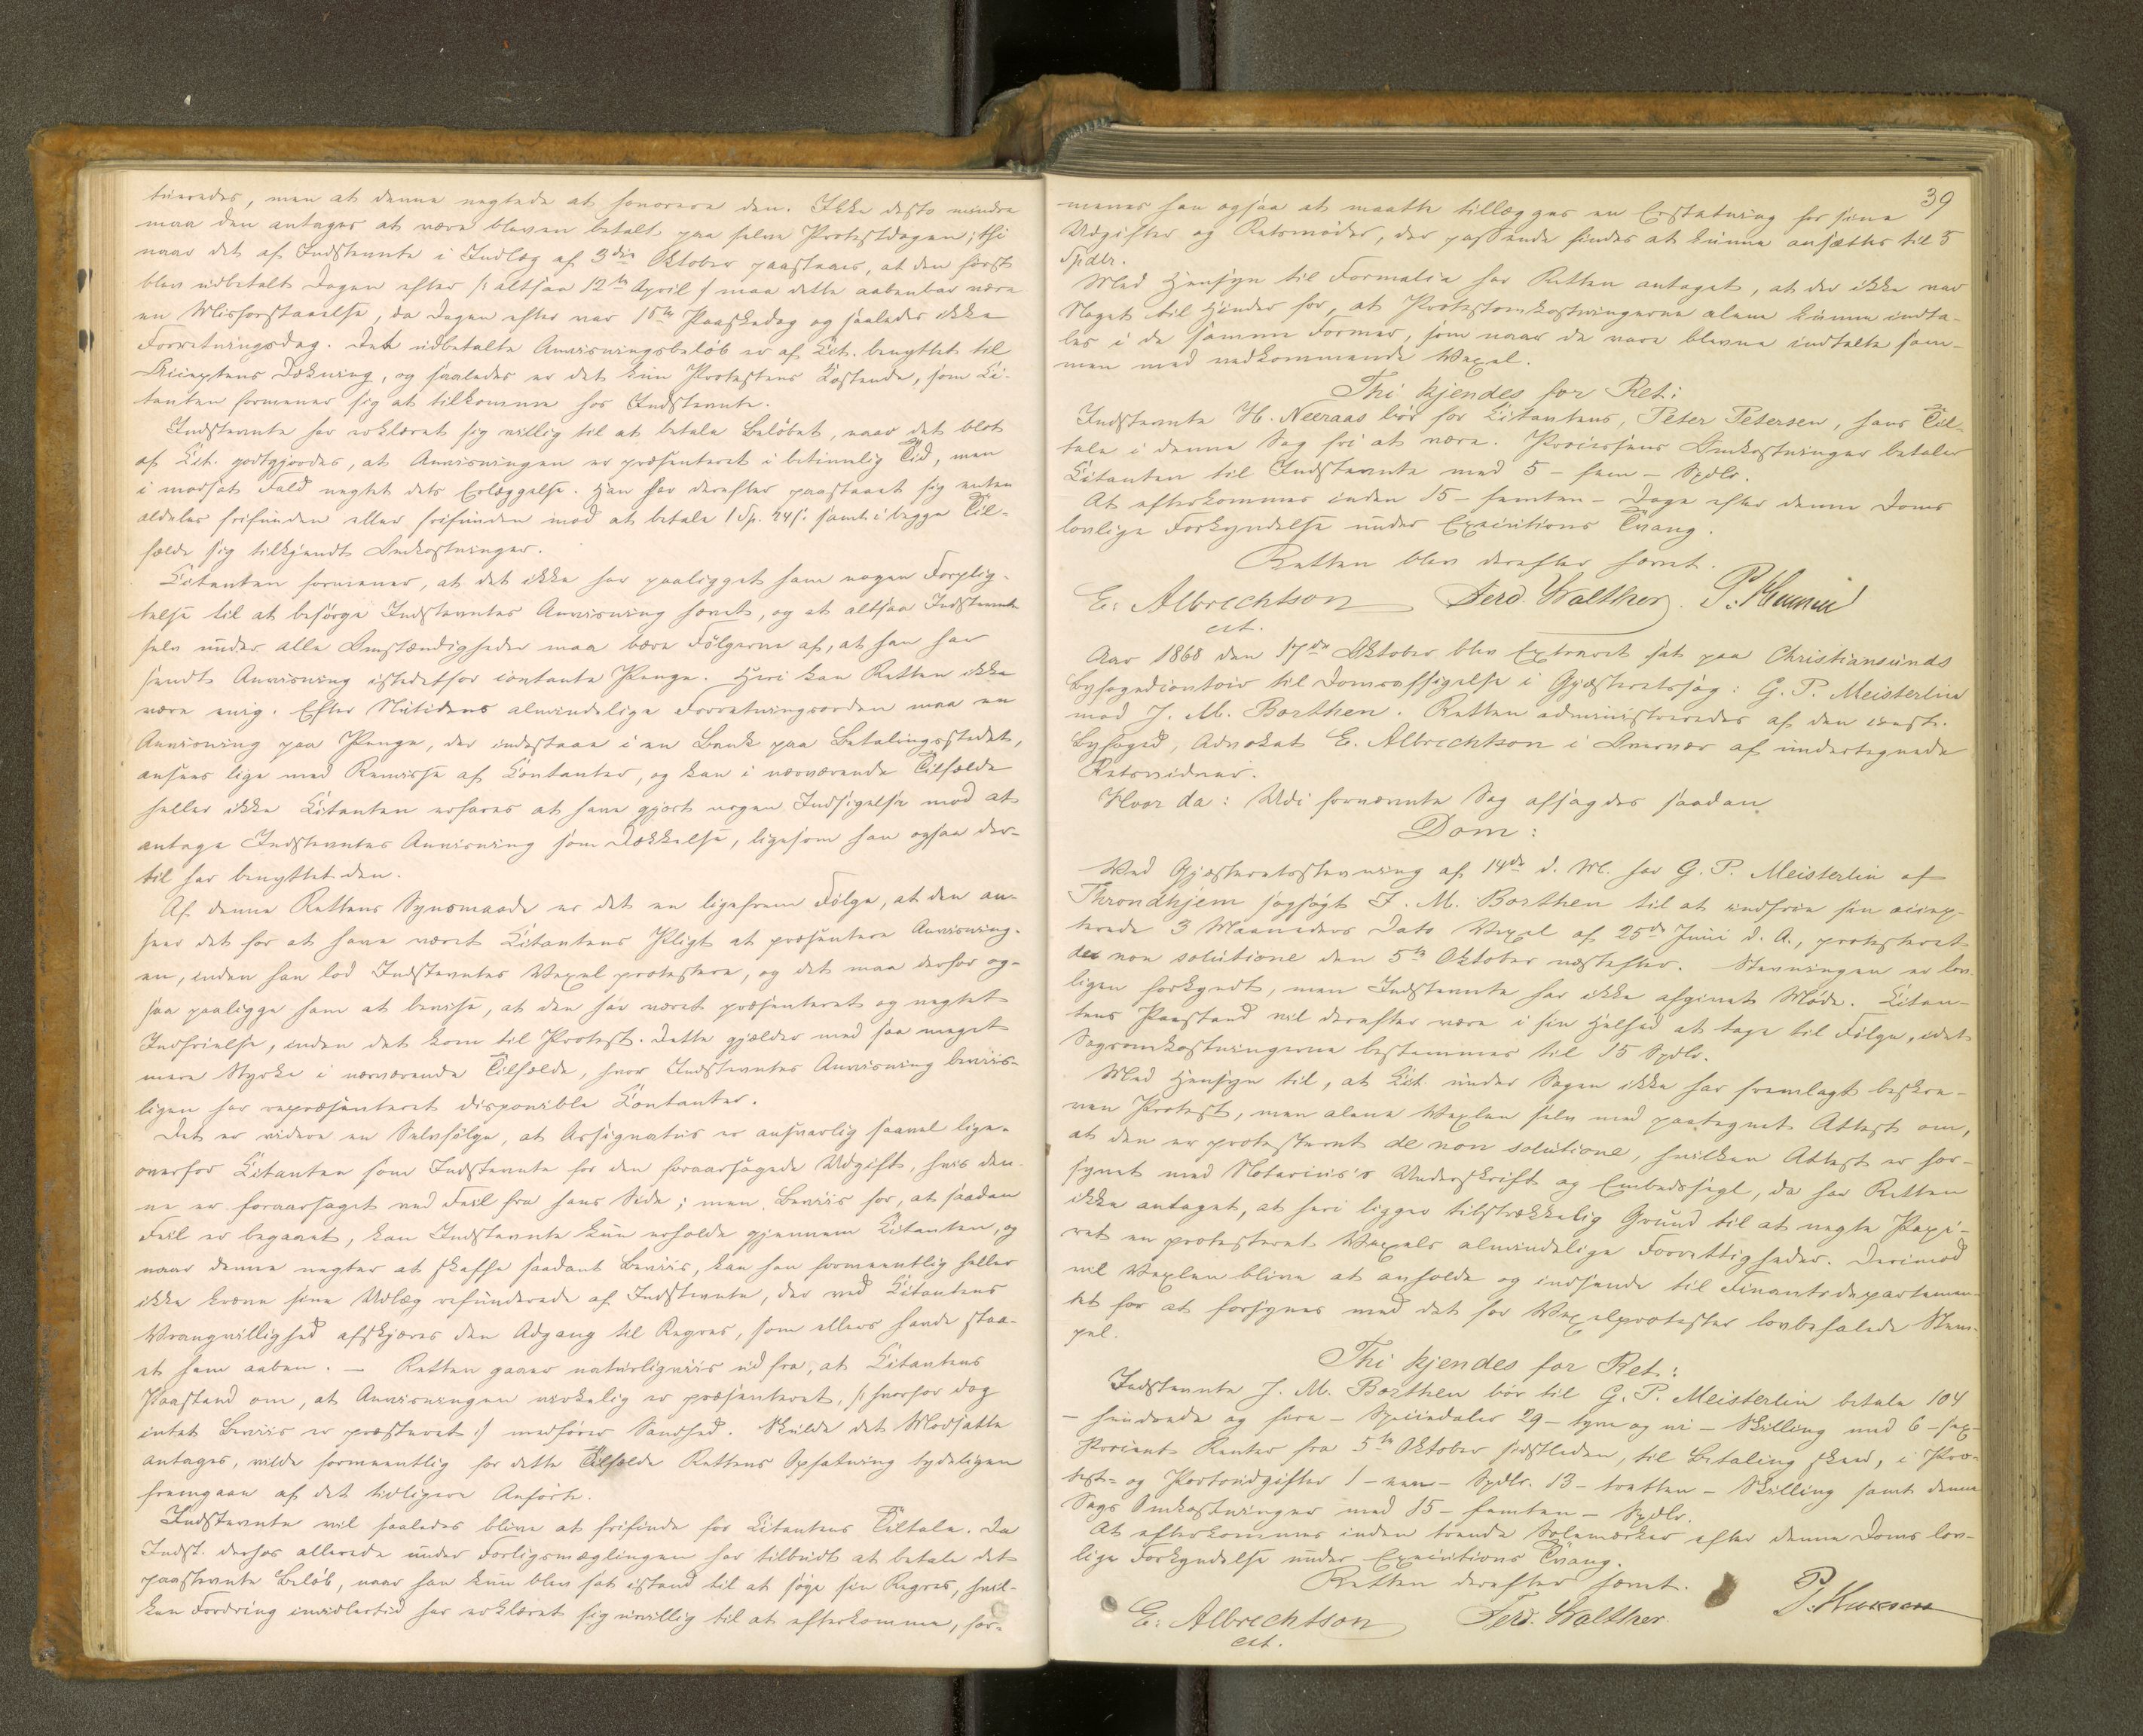 tueredes, men at denne negtede at honorere den. Ikke desto mindre
maa den antages at være bleven betalt paa selve Protestdagen; thi
naar det af Indstevnte i Indlæg af 3die Oktober paastaaes, at den først
blev udbetalt Dagen efter /: altsaa 12te April :/ maa dette aabenbar være
en Misforstaaelse, da Dagen efter var 1ste Paaskedag og saaledes ikke
Forretningsdag. Det udbetalte Anvisningsbeløb er af Cit. benyttet til
Acceptens Dækning, og saaledes er det kun Protestens Kostende, som Ci-
tanten formener sig at tilkomme hos Indstevnte.
Indstevnte har erklæret sig villig til at betale Beløbet, naar det blot
af Cit. godtgjordes, at Anvisningen er præsenteret i betimelig Tid, men
i modsat Fald negtet dets Erlæggelse. Han har derefter paastaaet sig enten
aldeles frifunden eller frifunden mod at betale 1 Sp. 24 s: samt i begge Til-
fælde sig tilkjendt Omkostninger.
Citanten formener, at det ikke har paaligget ham nogen Forplig-
telse til at besørge Indstevntes Anvisning hævet, og at altsaa Indstevnte
selv under alle Omstændigheder maa bære Følgerne af, at han har
sendt Anvisning istedetfor contante Penge. Heri kan Retten ikke
være enig. Efter Nutidens almindelige Forretningsorden maa en
Anvisning paa Penge, der indestaae i en Bank paa Betalingsstedet,
ansees lige med Remisse af Contanter, og kan i nærværende Tilfælde
heller ikke Citanten erfares at have gjort nogen Indsigelse mod at
antage Indstevntes Anvisning som Dækkelse, ligesom han ogsaa der-
til har benyttet den.
Af denne Rettens Synsmaade er det en ligefrem Følge, at den an-
seer det for at have været Citantens Pligt at præsentere Anvisning-
en, inden han lod Indstevntes Vexel protestere, og det maa derfor og-
saa paaligge ham at bevise, at den har været præsenteret og negtet
Indfrielse, inden det kom til Protest. Dette gjælder med saa meget
mere Styrke i nærværende Tilfælde, hvor Indstevntes Anvisning beviis-
ligen har repræsenteret disponible Contanter.
Det er videre en Selvfølge, at Assignatus er ansvarlig saavel lige-
overfor Citanten som Indstevnte for den foraarsagede Udgift, hvis den-
ne er foraarsaget ved Feil fra hans Side; men Beviis for, at saadan
Feil er begaaet, kan Indstevnte kun erholde gjennem Citanten, og
naar denne negter at skaffe saadant Beviis, kan han formeentlig heller
ikke kræve sine Udlæg refunderede af Indstevnte, der ved Citantens
Vrangvillighed afskjæres den Adgang til Regres, som ellers havde staa-
et ham aaben. — Retten gaaer naturligviis ud fra, at Citantens
Paastand om, at Anvisningen virkelig er præsenteret, /: hvorfor dog
intet Beviis er præsteret :/ medfører Sandhed. Skulde det Modsatte
antages, vilde formeentlig for dette Tilfælde Rettens Opfatning tydeligen
fremgaae af det tidligere Anførte.
Indstevnte vil saaledes blive at frifinde for Citantens Tiltale. Da
Indst. derhos allerede under Forligsmæglingen har tilbudt at betale det
paastevnte Beløb, naar han kun blev sat istand til at søge sin Regres, hvil-
ken Fordring imidlertid har erklæret sig uvillig til at efterkomme, for-
39
menes han ogsaa at maatte tillægges en Erstatning for sine
Udgifter og Retsmøder, der passende findes at kunne ansættes til 5
Spdlr.
Med Hensyn til Formalia har Retten antaget, at der ikke var
Noget til Hinder for, at Protestomkostningerne alene kunne indta-
les i de samme Former, som naar de vare blevne indtalte sam-
men med vedkommende Vexel.
Thi kjendes for Ret:
Indstevnte H. Neeraas bør for Citantens, Peter Petersen, hans Til-
tale i denne Sag fri at være. Processens Omkostninger betaler
Citanten til Indstevnte med 5 – fem – Spdlr.
At efterkommes inden 15 – femten – Dage efter denne Doms
lovlige Forkyndelse under Executions Tvang.
Retten blev derefter hævet.
E. Albrechtson Ferd. Walther.
cst.
Aar 1868 den 17de Oktober blev Extraret sat paa Christiansunds
Byfogedcontoir til Domsafsigelse i Gjæsteretssag: G. P. Meisterlin
mod J. M. Borthen. Retten administreredes af den const.
Byfoged, Advokat E. Albrechtson i Overvær af undertegnede
Retsvidner.
Hvor da: Udi fornævnte Sag afsagdes saadan
Dom:
Ved Gjæsteretsstevning af 14de d. M. har G. P. Meisterlin af
Throndhjem sagsøgt J. M. Borthen til at indfrie sin accep-
terede 3 Maaneders Dato Vexel af 25de Juni d. A., protesteret
de non solutione den 5te Oktober næstefter. Stevningen er lov-
ligen forkyndt, men Indstevnte har ikke afgivet Møde. Citan-
tens Paastand vil derefter være i sin Helhed at tage til Følge, idet
Sagsomkostningerne bestemmes til 15 Spdlr.
Med Hensyn til, at Cit. under Sagen ikke har fremlagt beskre-
ven Protest, men alene Vexlen selv med paategnet Attest om,
at den er protesteret de non solutione, hvilken Attest er for-
synet med Notarius's Underskrift og Embedssegl, da har Retten
ikke antaget, at heri ligger tilstrækkelig Grund til at negte Papi-
ret en protesteret Vexels almindelige Forrettigheder. Derimod
vil Vexlen blive at anholde og indsende til Finantsdepartemen-
tet for at forsynes med det for Vexelprotester lovbefalede Stem-
pel.
Thi kjendes for Ret:
Indstevnte J. M. Borthen bør til G. P. Meisterlin betale 104
– hundrede og fire – Speciedaler 29 – tyve og ni – Skilling med 6 – sex –
Procent Renter fra 5te Oktober sidstleden, til Betaling skeer, i Pro-
test- og Portoudgifter 1 – een – Spdlr. 13 – tretten – Skilling samt denne
Sags Omkostninger med 15 – femten – Spdlr.
At efterkommes inden trende Solemærker efter denne Doms lov-
lige Forkyndelse under Executions Tvang.
Retten derefter hævet.
E. Albrechtson Ferd. Walther.
cst.